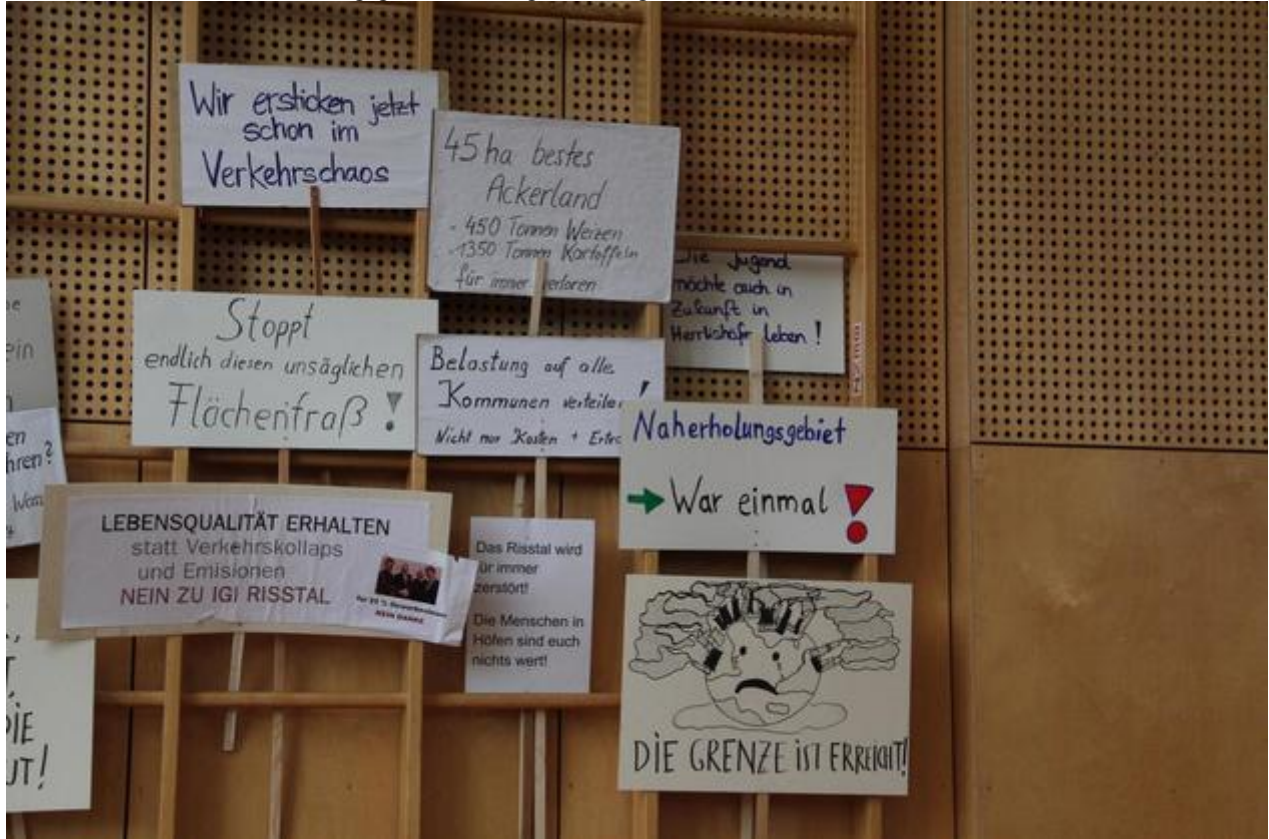 Wir ersticken jetzt
schon im
Verkehrschaos
45 ha bestes
Ackerland
- 450 Tonnen Weizen
- 1350 Tonnen Kartoffeln
für immer verloren
Die Jugend
möchte auch in
Zukunft in
leben !
Stoppt
endlich diesen unsäglichen
Flächenfraß !
Belastung auf alle
Kommunen verteilen !
Nicht nur Kosten +
Naherholungsgebiet
→ War einmal !
ein
en
hren?
LEBENSQUALITÄT ERHALTEN
statt Verkehrskollaps
und Emisionen
NEIN ZU IGI RISSTAL
NEIN DANKE
Das Risstal wird
ür immer
zerstört!
Die Menschen in
Höfen sind euch
nichts wert!
DIE
UT!
DIE GRENZE iST ERREICHT!